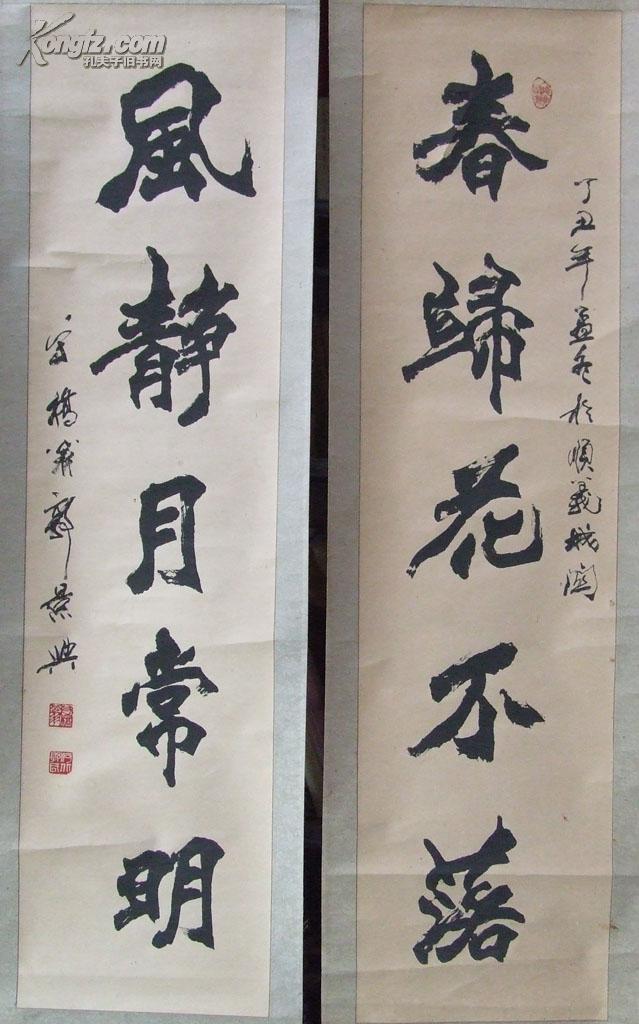 春歸花不落
丁丑年孟冬於順義城關
風靜月常明
郭景典
Kongfz.com
孔夫子旧书网